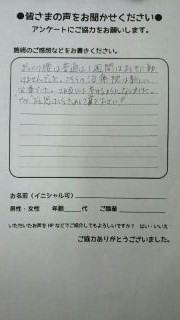 ●皆さまの声をお聞かせください●
アンケートにご協力をお願いします。
施術のご感想などをお書きください。
ぎっくり腰は普通は1週間はまともに動
けませんでした。こちらの治療院は新しい
お名前（イニシャル可）
男性・女性 年齢 代 ご職業
いただいたお声をHPなどでご紹介してもよろしいですか？ はい・いいえ
ご協力ありがとうございました。